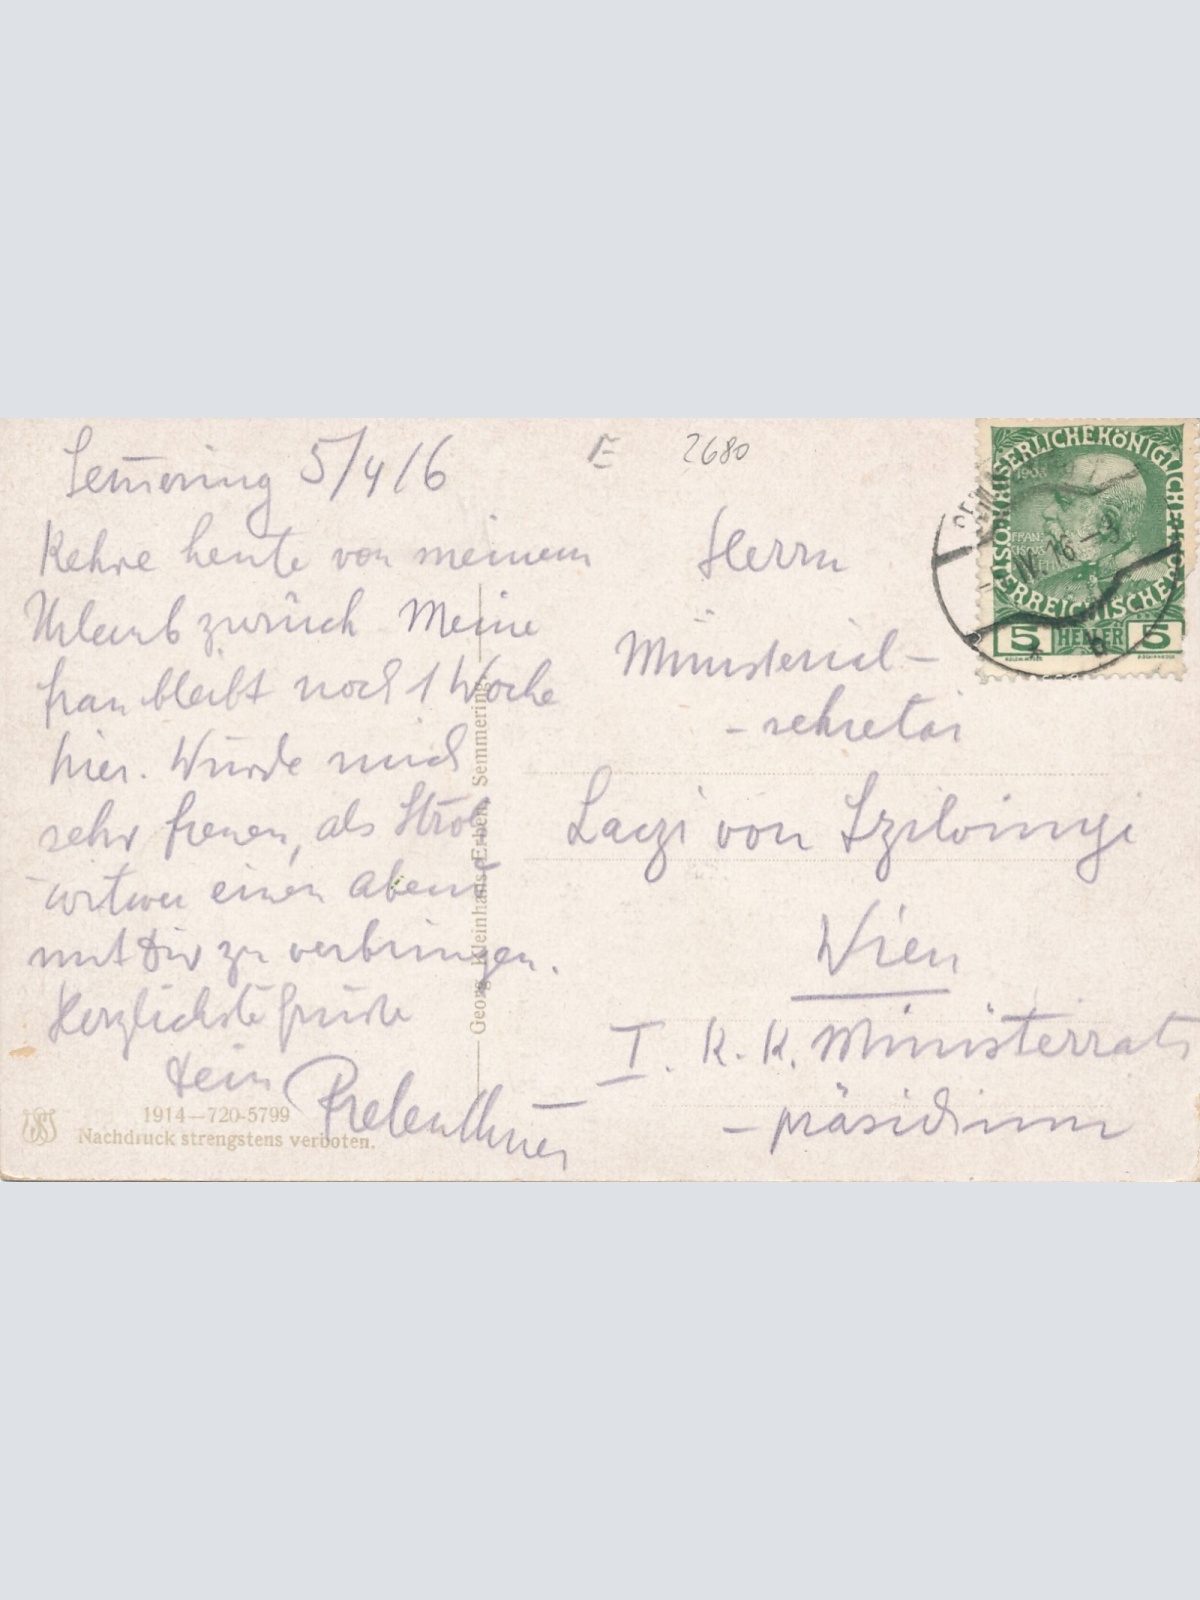 Semmering 5/4/6
Kehre heute von meinem
Urlaub zurück Meine
Frau bleibt noch 1 Woche
hier. Würde mich
sehr freuen, als Stroh
witwer einen Abend
mit Dir zu verbringen.
Herzlichste Grüsse
Dein
1914—720-5799
Nachdruck strengstens verboten.
Georg Kleinhans Erben, Semmering.
E 2680
Herrn
Ministerial-
-sekretär
Laczi von
Wien
I. K. K. Ministerrats
-präsidium
KAISERLICHE KÖNIGLICHE
ÖSTERREICHISCHE POST
1908
FRAN-
CISCVS
5 HELLER 5
IV. 16 - 9
* b